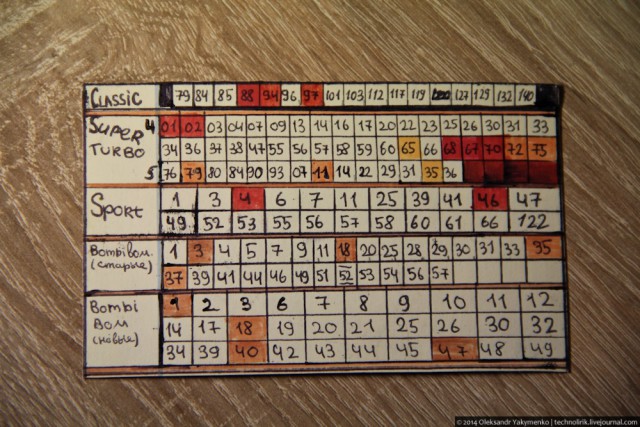 CLASSIC 79 84 85 88 94 96 97 101 103 112 117 119 127 129 132 140
SUPER TURBO 4 01 02 03 04 07 09 13 14 16 17 20 22 23 25 26 30 31 33
34 36 37 38 47 55 56 57 58 59 60 65 66 68 67 70 72 75
5 76 79 80 84 90 93 07 11 14 22 29 31 35 36
Sport 1 3 4 6 7 11 25 39 41 46 47
49 52 53 55 56 57 58 60 61 66 122
Bombibom 1 3 4 5 7 9 11 18 20 25 28 29 30 31 33 35
(старые) 37 39 41 44 46 49 51 52 53 54 56 57
Bombi 1 2 3 6 7 8 9 10 11 12
Bom 14 17 18 19 20 21 25 26 30 32
(новые) 34 39 40 42 43 44 45 47 48 49
© 2014 Oleksandr Yakymenko | technolirik.livejournal.com